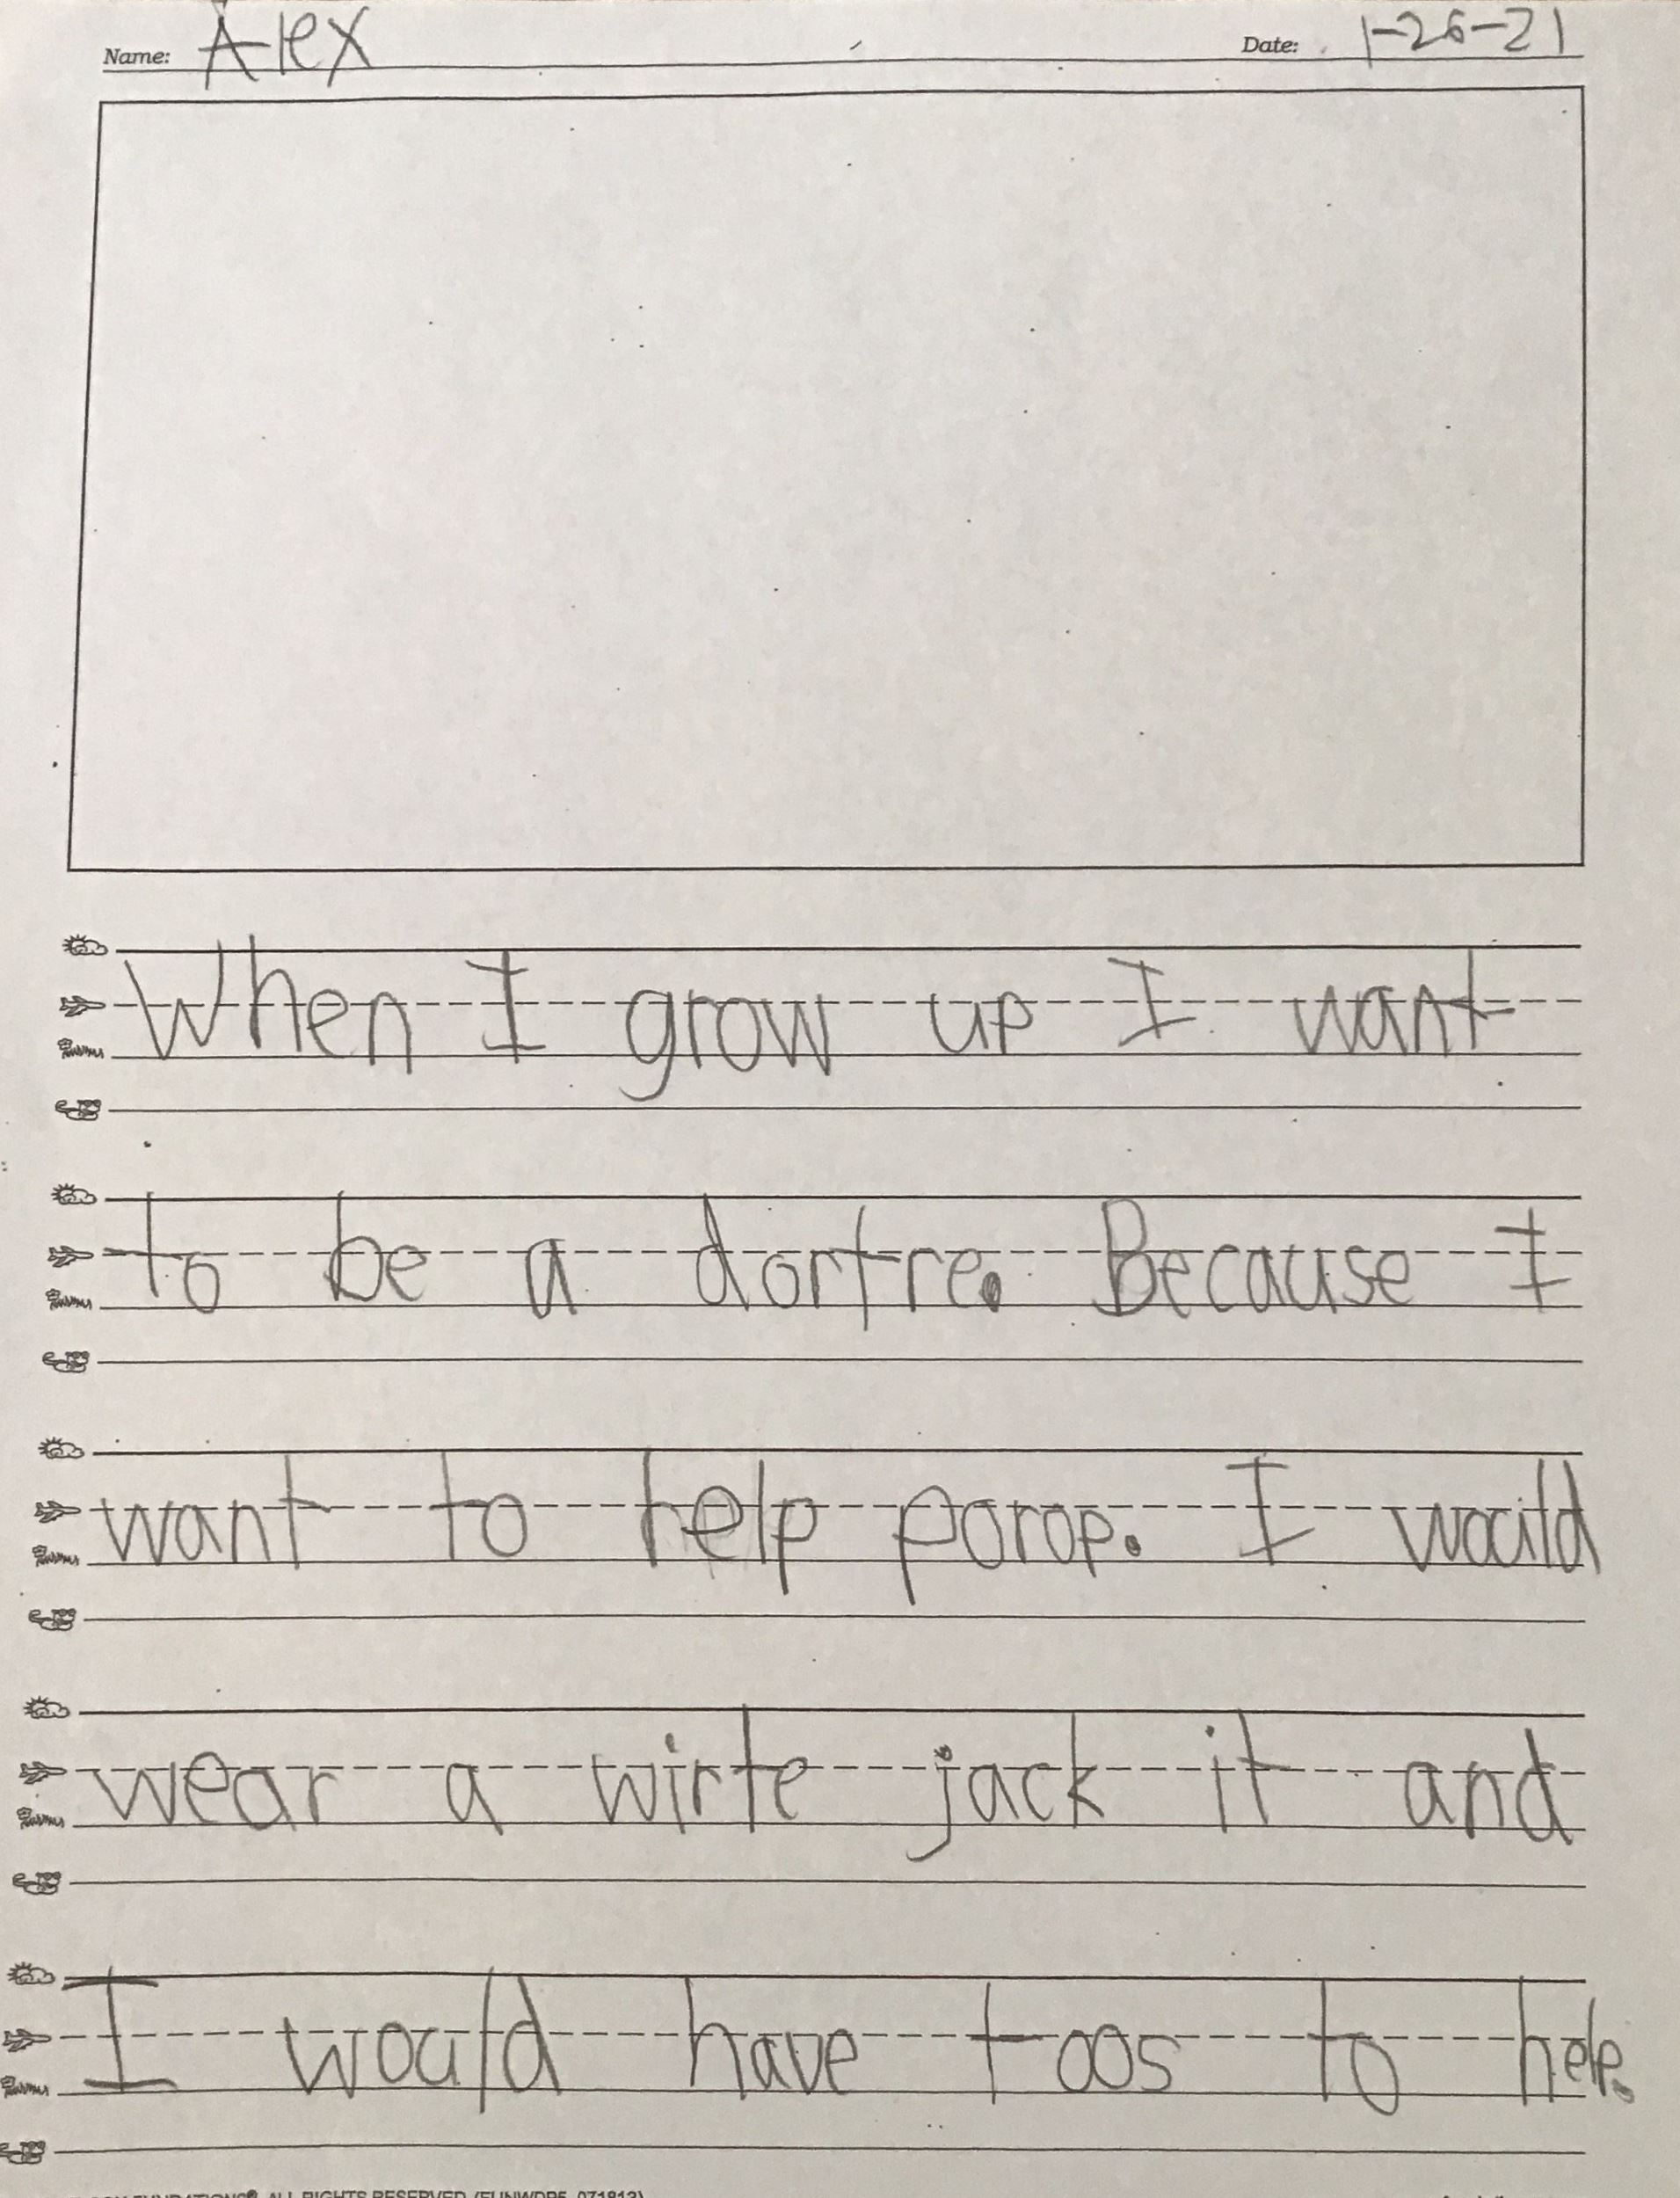 Name: Alex Date: 1-26-21
When I grow up I want
to be a dortre. Because I
want to help porop. I would
wear a wirte jack it and
I would have toos to help.
ALL RIGHTS RESERVED. (FUNWDP5 071812)